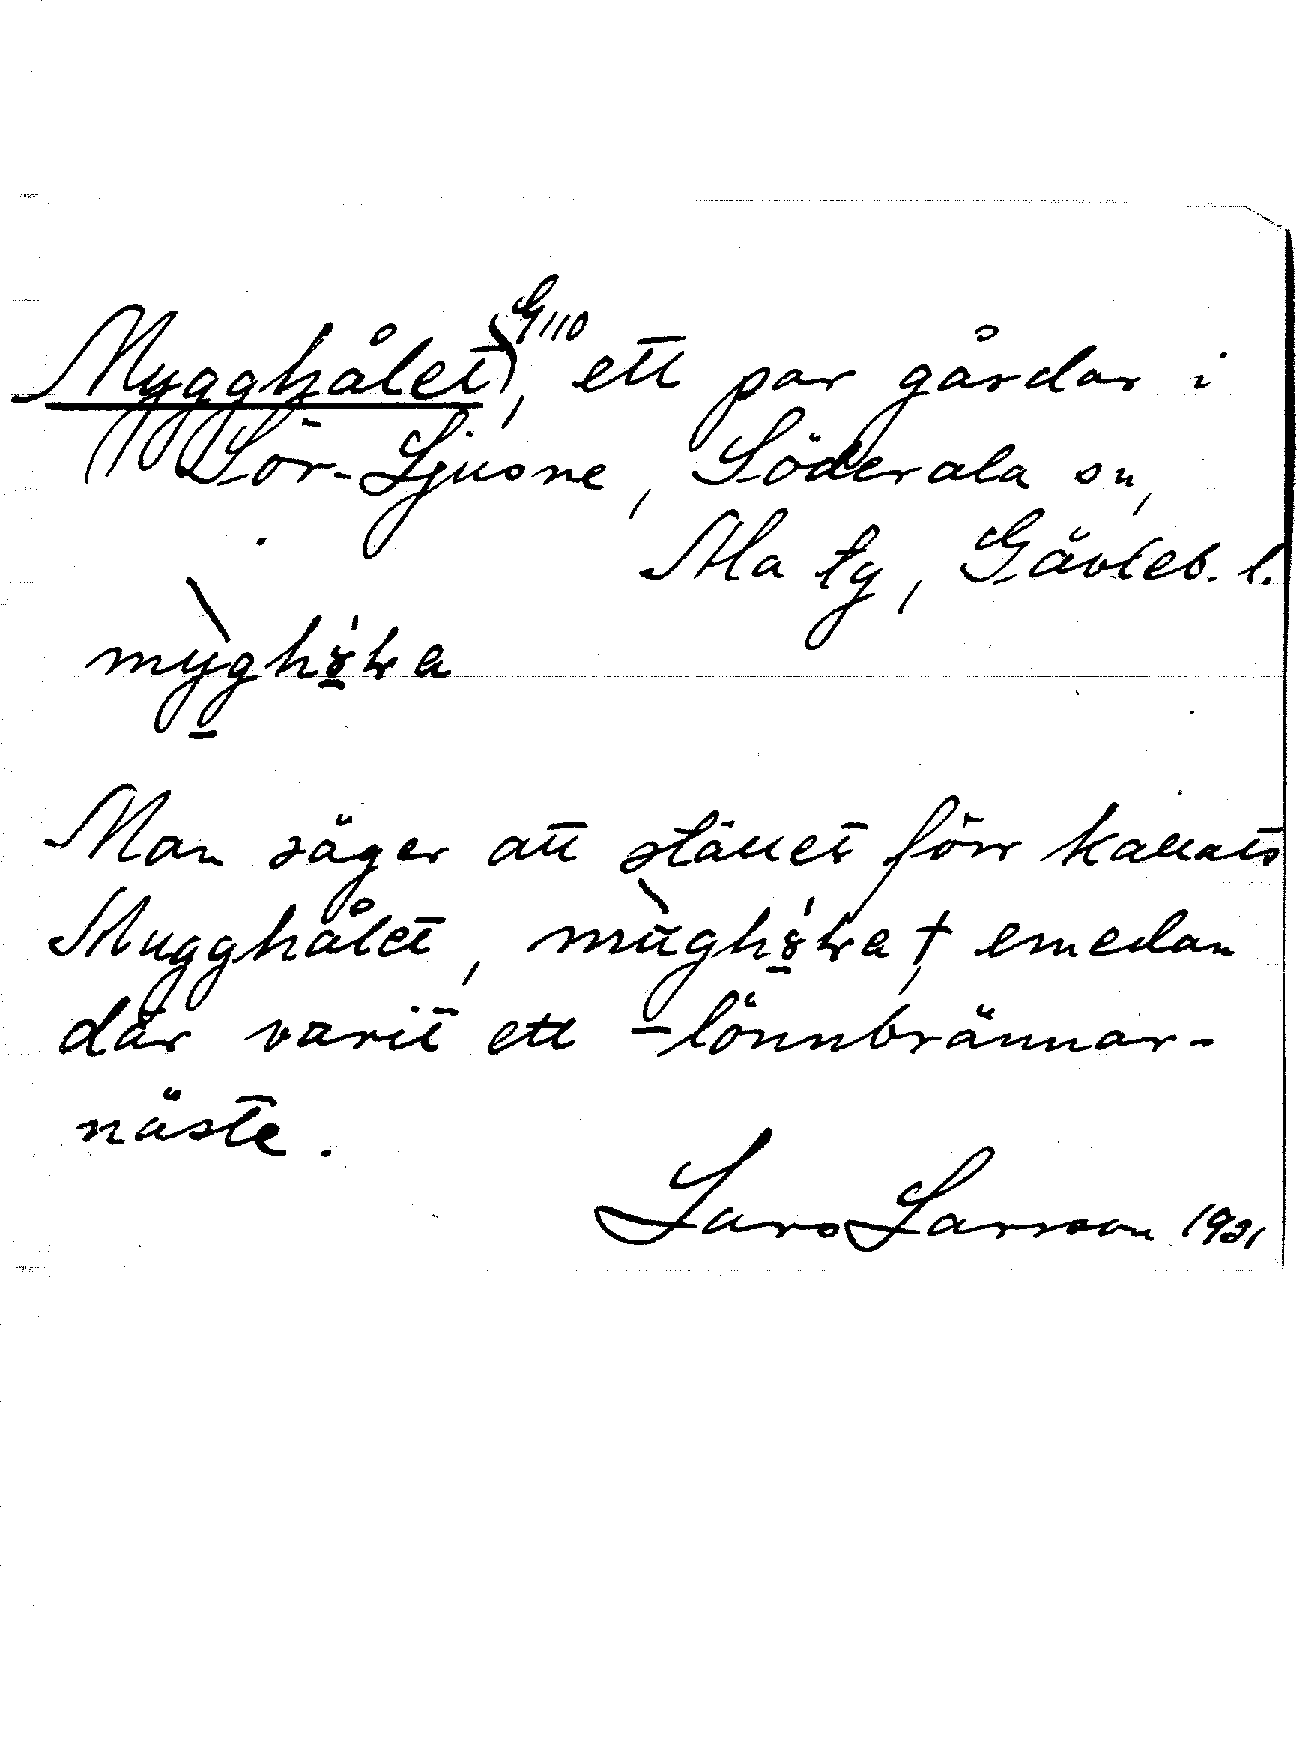 G 110
Mygghålet, ett par gårdar i
Sör-Ljusne, Söderala sn,
Ala tg, Gävleb. l.
Man säger att stället förr kallats
Mugghålet, emedan
där varit ett lönnbrännar-
näste.
Lars Larsson 1921